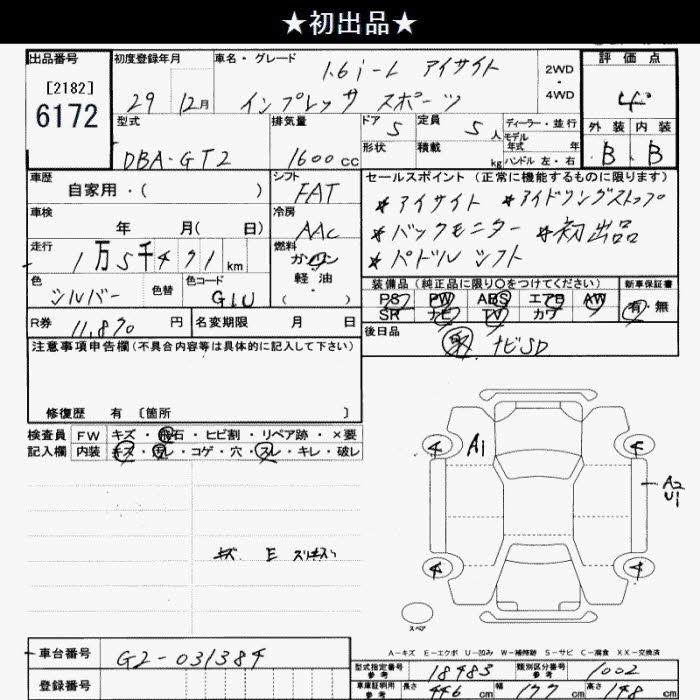 ★初出品★
出品番号 初度登録年月 車名・グレード 1.6 i-L アイサイト 2WD・4WD 評価点
[2182]
6172 29 12月 インプレッサ スポーツ 4
型式 排気量 ドア 5 定員 5人 ディーラー・並行 外装 内装
モデル年式 年
DBA-GT2 1600cc 形状 積載 kg ハンドル 左・右 B B
車歴 シフト セールスポイント (正常に機能するものに限ります)
自家用・( ) FAT
＊アイサイト ＊アイドリングストップ
車検 冷房
年 月( 日) AAC ＊バックモニター ＊初出品
走行 1万5千491km 燃料 ガソリン 軽油・( ) ＊パドルシフト
色 シルバー 色替 色コード G1U
装備品(純正品に限り○をつけてください) 新車保証書
PS PW ABS エアB AW 有・無
SR ナビ TV カワ
R券 11,870円 名変期限 月 日 後日品
取 ナビSD
注意事項申告欄(不具合内容等は具体的に記入して下さい)
修復歴 有 [箇所 ]
検査員 FW キズ・飛石・ヒビ割・リペア跡・×要
記入欄 内装 キズ・汚レ・コゲ・穴・スレ・キレ・破レ
A1
4 4
A2
U1
キズ E
4 4
スペア
A-キズ E-エクボ U-凹み W-補修跡 S-サビ C-腐食 XX-交換済
車台番号 GT2-031384
型式指定番号 参考 18483 類別区分番号 参考 1002
登録番号
車庫証明用 参考 長さ 446cm 幅 177cm 高さ 148cm